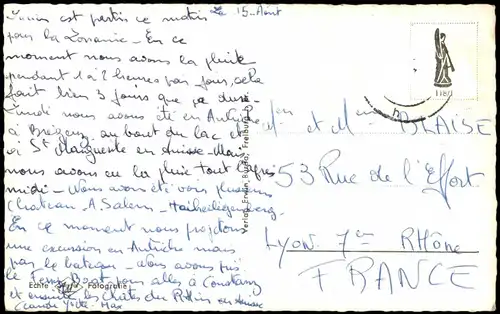 Le 15 Août
est partis ce matin
pour la Lorraine - En ce
moment nous avons la pluie
pendant 1 à 2 heures par jour, cela
fait bien 3 jours que ça dure.
Lundi nous avons été en Autriche
à Bregenz au bout du lac et
à St Marguerite en Suisse - Mais
nous avons eu la pluie tout l'après
midi - Nous avons été voir plusieurs
chateau, A. Salem - Haiheiligenberg.
En ce moment nous projetons
une excursion en Autriche mais
par le bateau - Nous avons pris
le Ferry Boat pour aller à Constanz
et ensuite les chutes du Rhin en Suisse
Claude Yvette Max
Echte Fotografie
Verlag Erwin Burda, Freiburg
1180
M et M BLAISE
53 Rue de l'Effort
LYON 7 RHÔNE
FRANCE